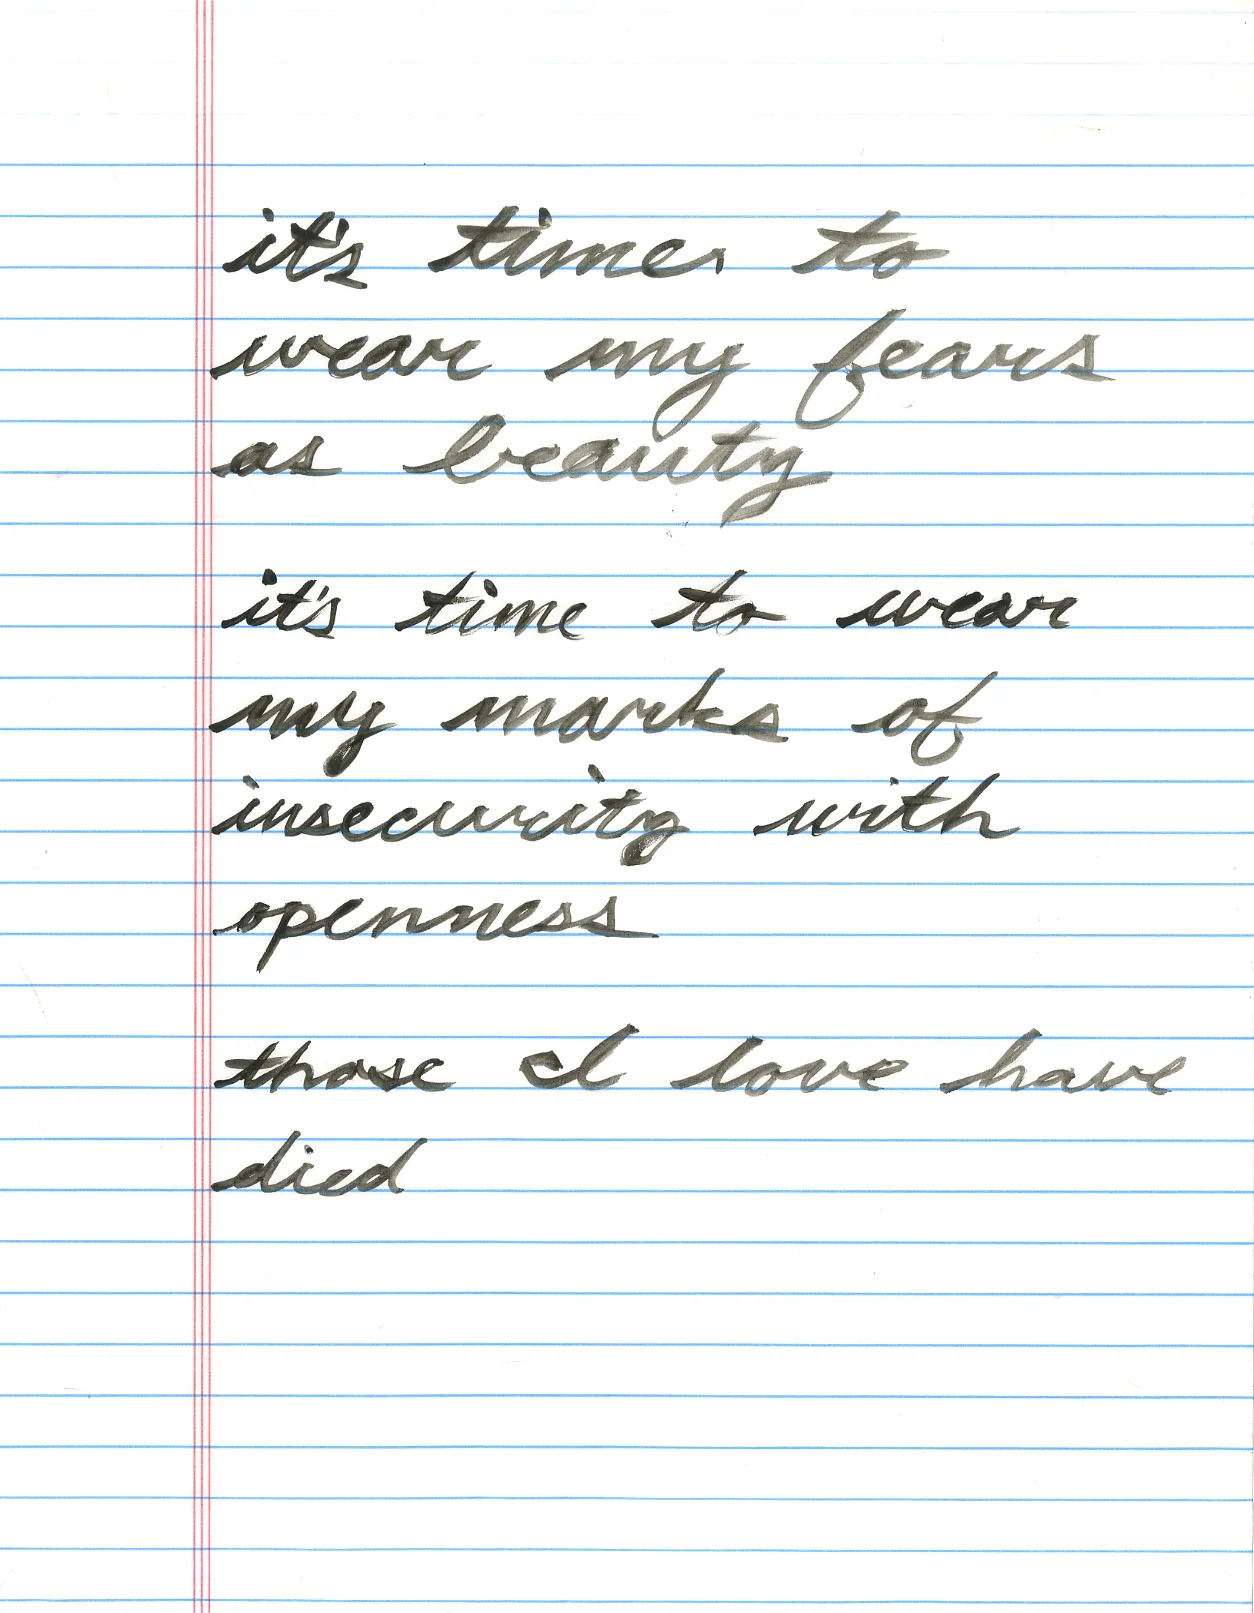 it's time to
wear my fears
as beauty
it's time to wear
my marks of
insecurity with
openness
those I love have
died